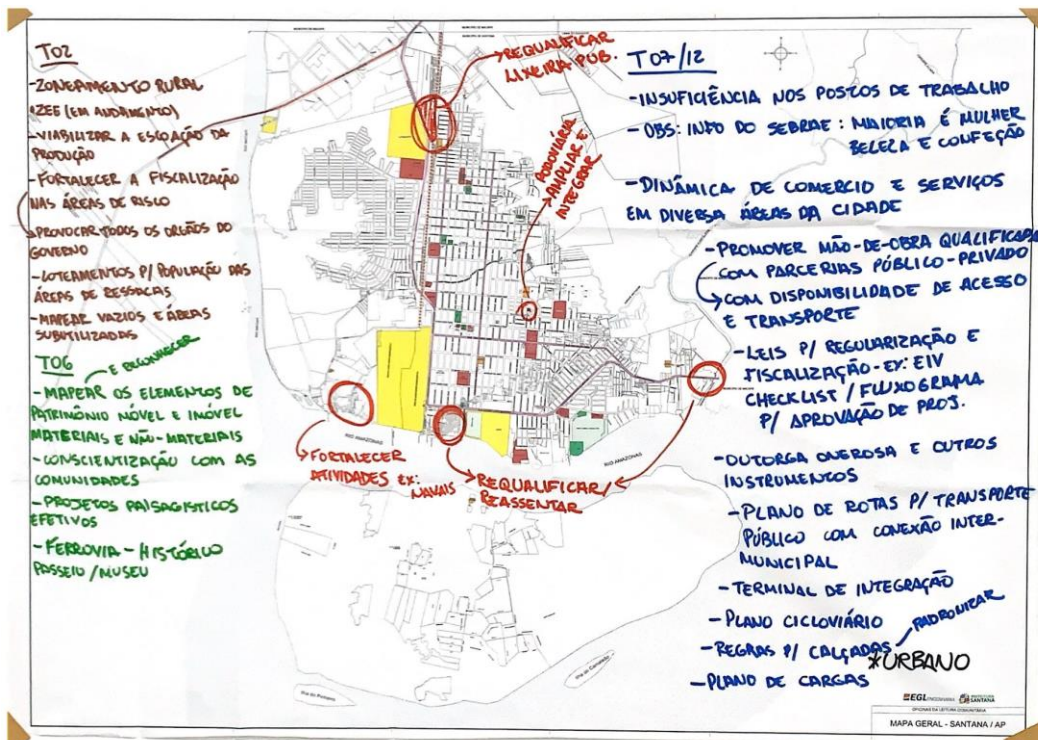 T02
-ZONEAMENTO RURAL
ZEE (EM ANDAMENTO)
-VIABILIZAR A ESCOAÇÃO DA
PRODUÇÃO
-FORTALECER A FISCALIZAÇÃO
NAS ÁREAS DE RISCO
PROVOCAR TODOS OS ORGÃOS DO
GOVERNO
-LOTEAMENTOS P/ POPULAÇÃO DAS
ÁREAS DE RESSACAS
-MAPEAR VAZIOS E ÁREAS
SUBUTILIZADAS
T06
E RECONHECER
-MAPEAR OS ELEMENTOS DE
PATRIMÔNIO MÓVEL E IMÓVEL
MATERIAIS E NÃO-MATERIAIS
-CONSCIENTIZAÇÃO COM AS
COMUNIDADES
-PROJETOS PAISAGISTICOS
EFETIVOS
-FERROVIA-HISTÓRICO
PASSEIO/MUSEU
REQUALIFICAR
LIXEIRA PUB.
RODOVIÁRIA
AMPLIAR E
INTEGRAR
FORTALECER
ATIVIDADES EX:
NAVAIS
REQUALIFICAR/
REASSENTAR
RIO AMAZONAS
RIO AMAZONAS
T07/12
-INSUFICIÊNCIA NOS POSTOS DE TRABALHO
-OBS: INFO DO SEBRAE: MAIORIA É MULHER
BELEZA E CONFEÇÃO
-DINÂMICA DE COMERCIO E SERVIÇOS
EM DIVERSA ÁREAS DA CIDADE
-PROMOVER MÃO-DE-OBRA QUALIFICADA
COM PARCERIAS PÚBLICO-PRIVADO
COM DISPONIBILIDADE DE ACESSO
E TRANSPORTE
-LEIS P/ REGULARIZAÇÃO E
FISCALIZAÇÃO-EX: EIV
CHECKLIST/FLUXOGRAMA
P/ APROVAÇÃO DE PROJ.
-OUTORGA ONEROSA E OUTROS
INSTRUMENTOS
-PLANO DE ROTAS P/ TRANSPORTE
PÚBLICO COM CONEXÃO INTER-
MUNICIPAL
-TERMINAL DE INTEGRAÇÃO
-PLANO CICLOVIÁRIO
-REGRAS P/ CALÇADAS
PADRONIZAR
*URBANO
-PLANO DE CARGAS
EGL ENGENHARIA
PREFEITURA SANTANA
OFICINAS DA LEITURA COMUNITÁRIA
MAPA GERAL - SANTANA / AP